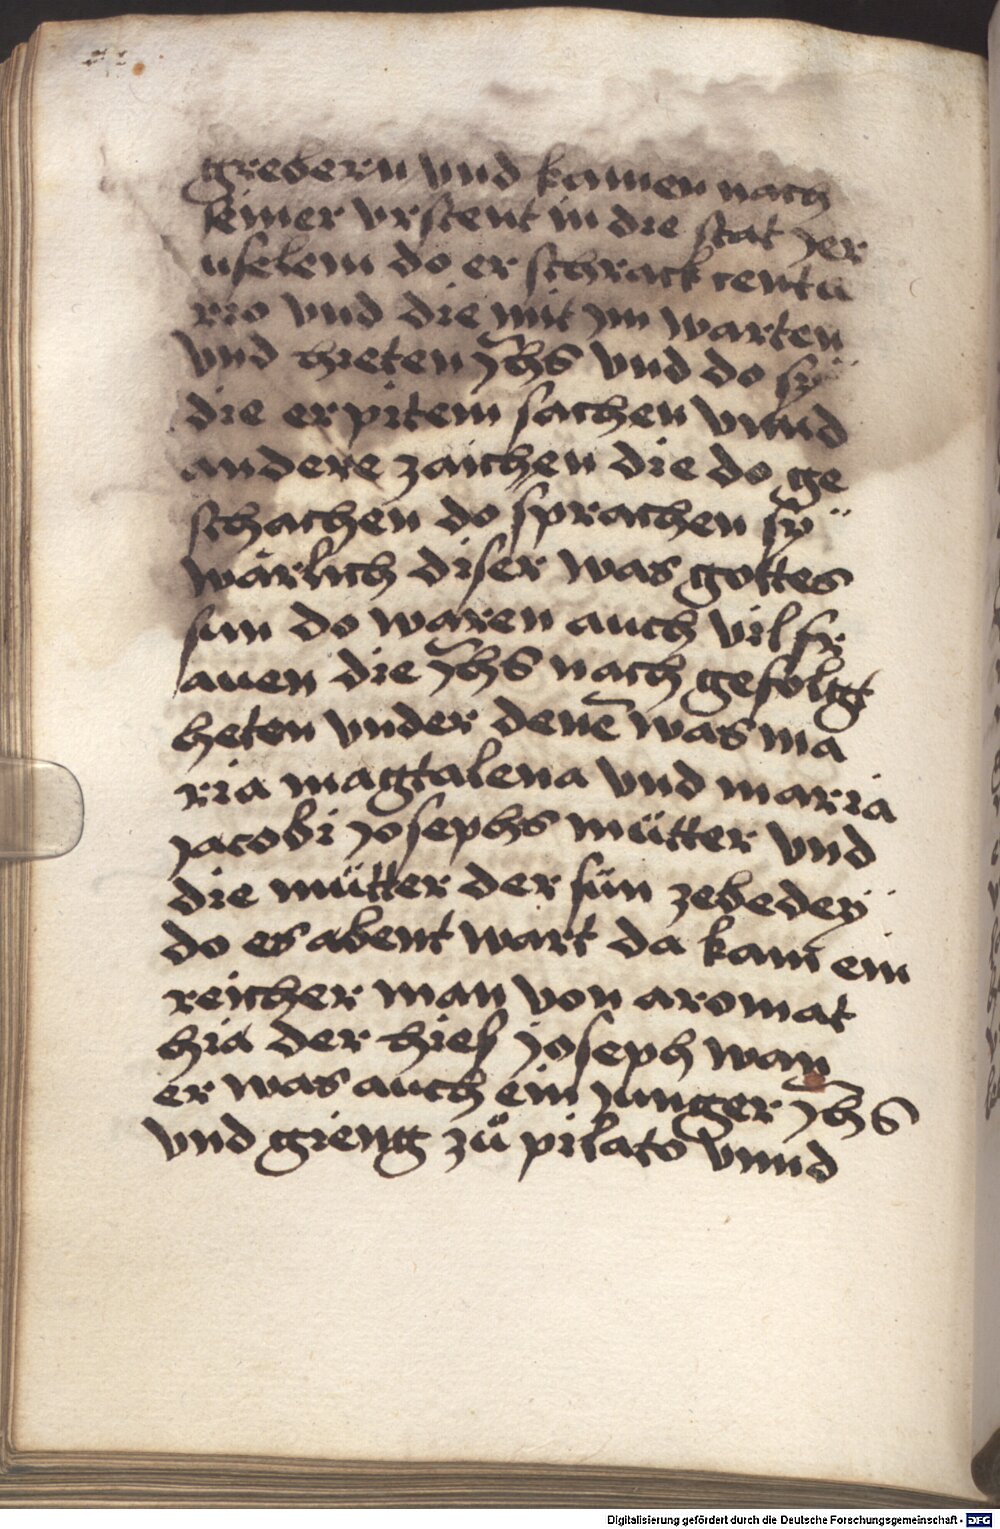 grebern vnd kamen nach
seiner vrstent in die stat jer
uselem do er schrack centu
rio vnd die mit jm warten
vnd hieten jh̄s vnd do sÿ
die erpitem sachen vnnd
andere zaichen die do ge
schachen do sprachen sÿ
wärlich diser was gottes
sun do waren auch vil fr
auen die jh̄s nach gefolgt
heten vnder denē was ma
ria magtalena vnd maria
jacobi josephs mütter vnd
die mütter der sün zebedeÿ
do es abent wart da kam ein
reicher man von aromat
hia der hies joseph wan
er was auch ein junger jh̄s
vnd gieng zů pilato vnnd
Digitalisierung gefördert durch die Deutsche Forschungsgemeinschaft - DFG